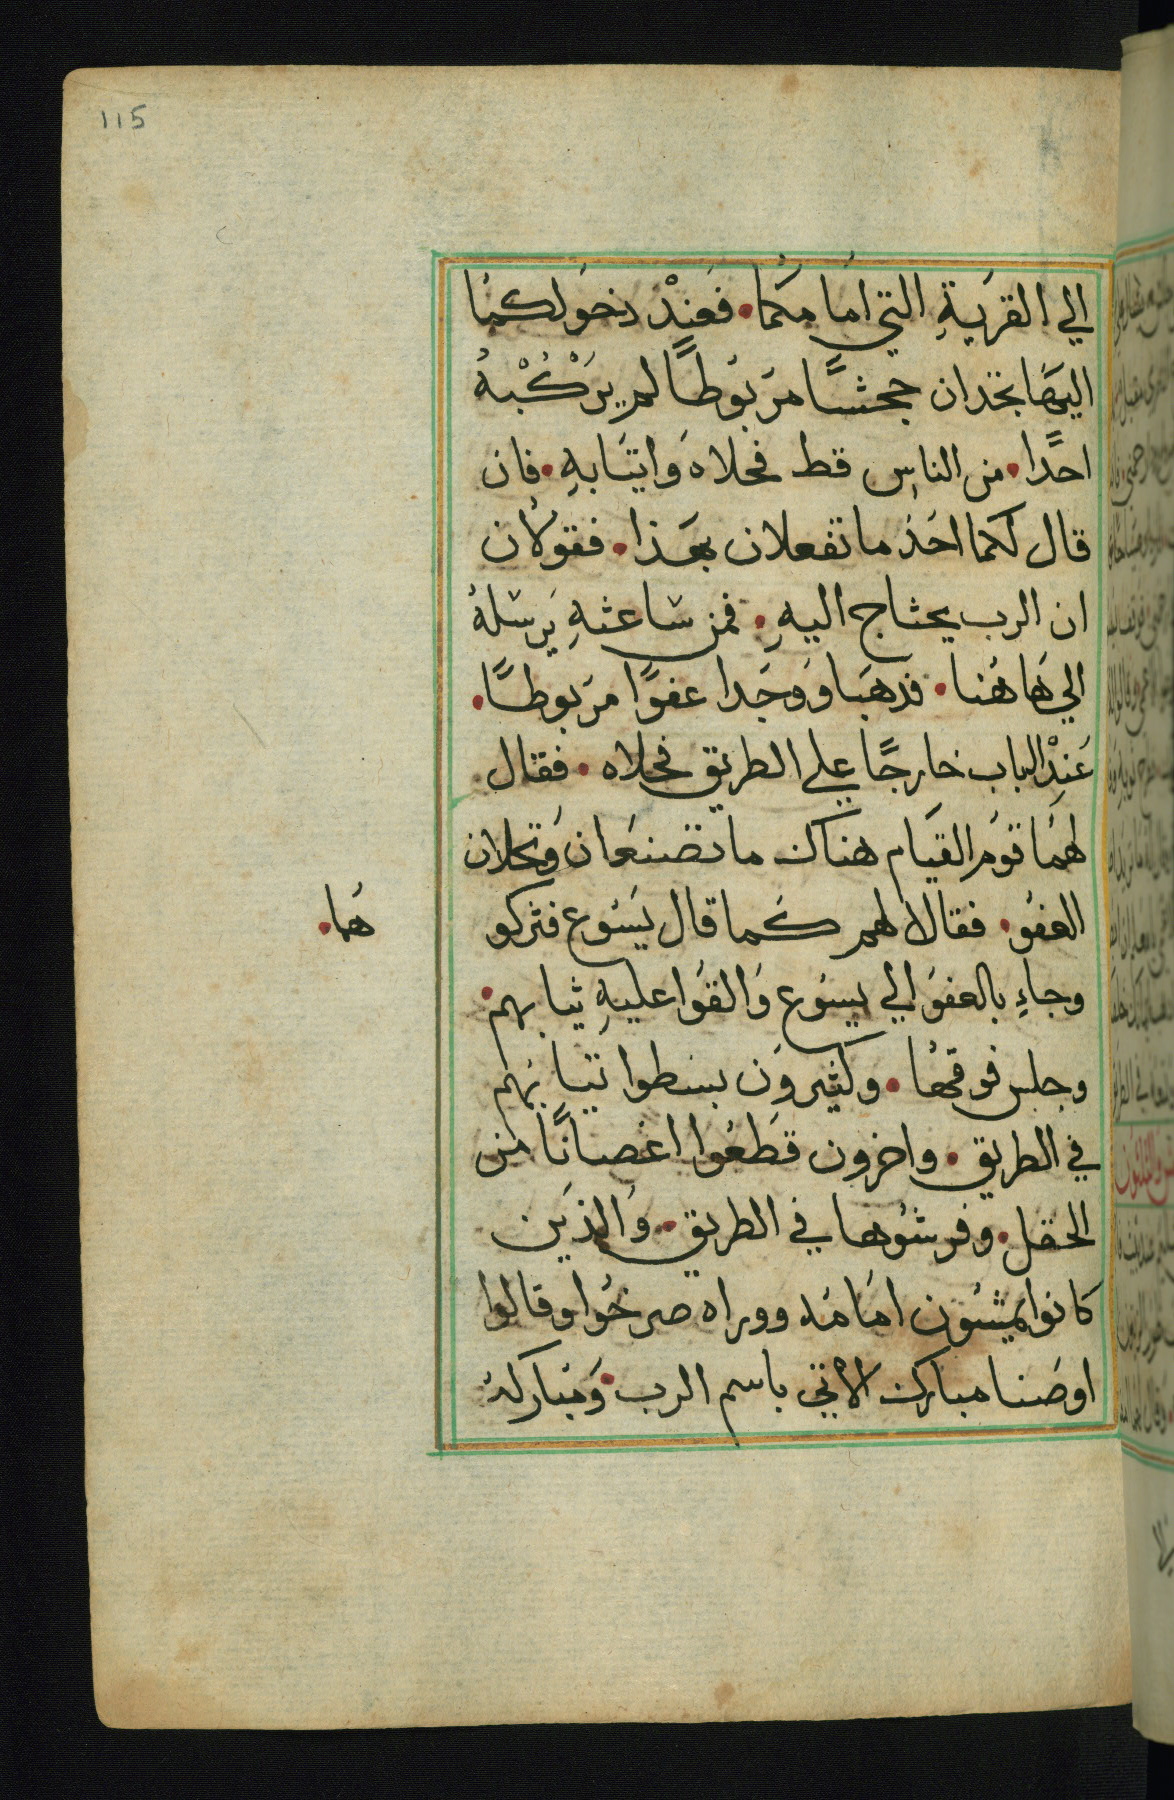 115
الي القريَةِ التي امَامَكَما • فَعِندْ دخوَلكمُا
اليهَا تجَدان جحشًا مرَبوُطاً لم يرَكُبْهُ
احًدا • من الناسِ قط فحلاهَ وَايتَابهِ • فان
قال لكما احَدَ ما تفعلان بهَذا • فقوُلان
ان الرب يحتاج اليهِ • فمن سَاعتهِ يَرسَلهُ
الي هَاهُنا • فذهبَا وَوجَدا عفوًا مرَبوطًا •
عَندِ الباب خارجًا علي الطريق فحلاه • فقال
لهمُا قومَ القيَام هناك ما تصَنعَان وَتحلان
العفوُ • فقالا لهم كَما قال يَسُوع فتركو
هُما •
وجاءِ بالعفوَ الي يسوُع وَالقوُا عليهِ ثيابهم •
وجلس فوقهُا • وكثيروَن بسَطوا تيابَهم
في الطريق • واخرون قَطَعُوا اغصانًا من
الحقل • وفرشوُها في الطريق • وَالذيَن
كانوا يمشوُن امَامَه ووراه صرخُوا وقالوا
اوصَنا مبارك الاتيِ باسم الرب • وَمَباركهُ